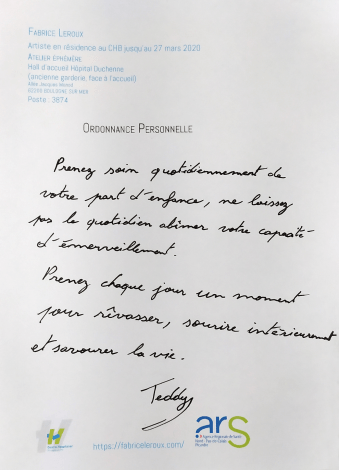 FABRICE LEROUX
Artiste en résidence au CHB jusqu'au 27 mars 2020
ATELIER ÉPHÉMÈRE
Hall d'accueil Hôpital Duchenne
(ancienne garderie, face à l'accueil)
Allée Jacques Monod
62200 BOULOGNE SUR MER
Poste : 3874
ORDONNANCE PERSONNELLE
Prenez soin quotidiennement de
votre part d'enfance, ne laissez
pas le quotidien abîmer votre capacité
d'émerveillement.
Prenez chaque jour un moment
pour rêvasser, sourire intérieurement
et savourer la vie.
Teddy
https://fabriceleroux.com/
ars
Agence Régionale de Santé